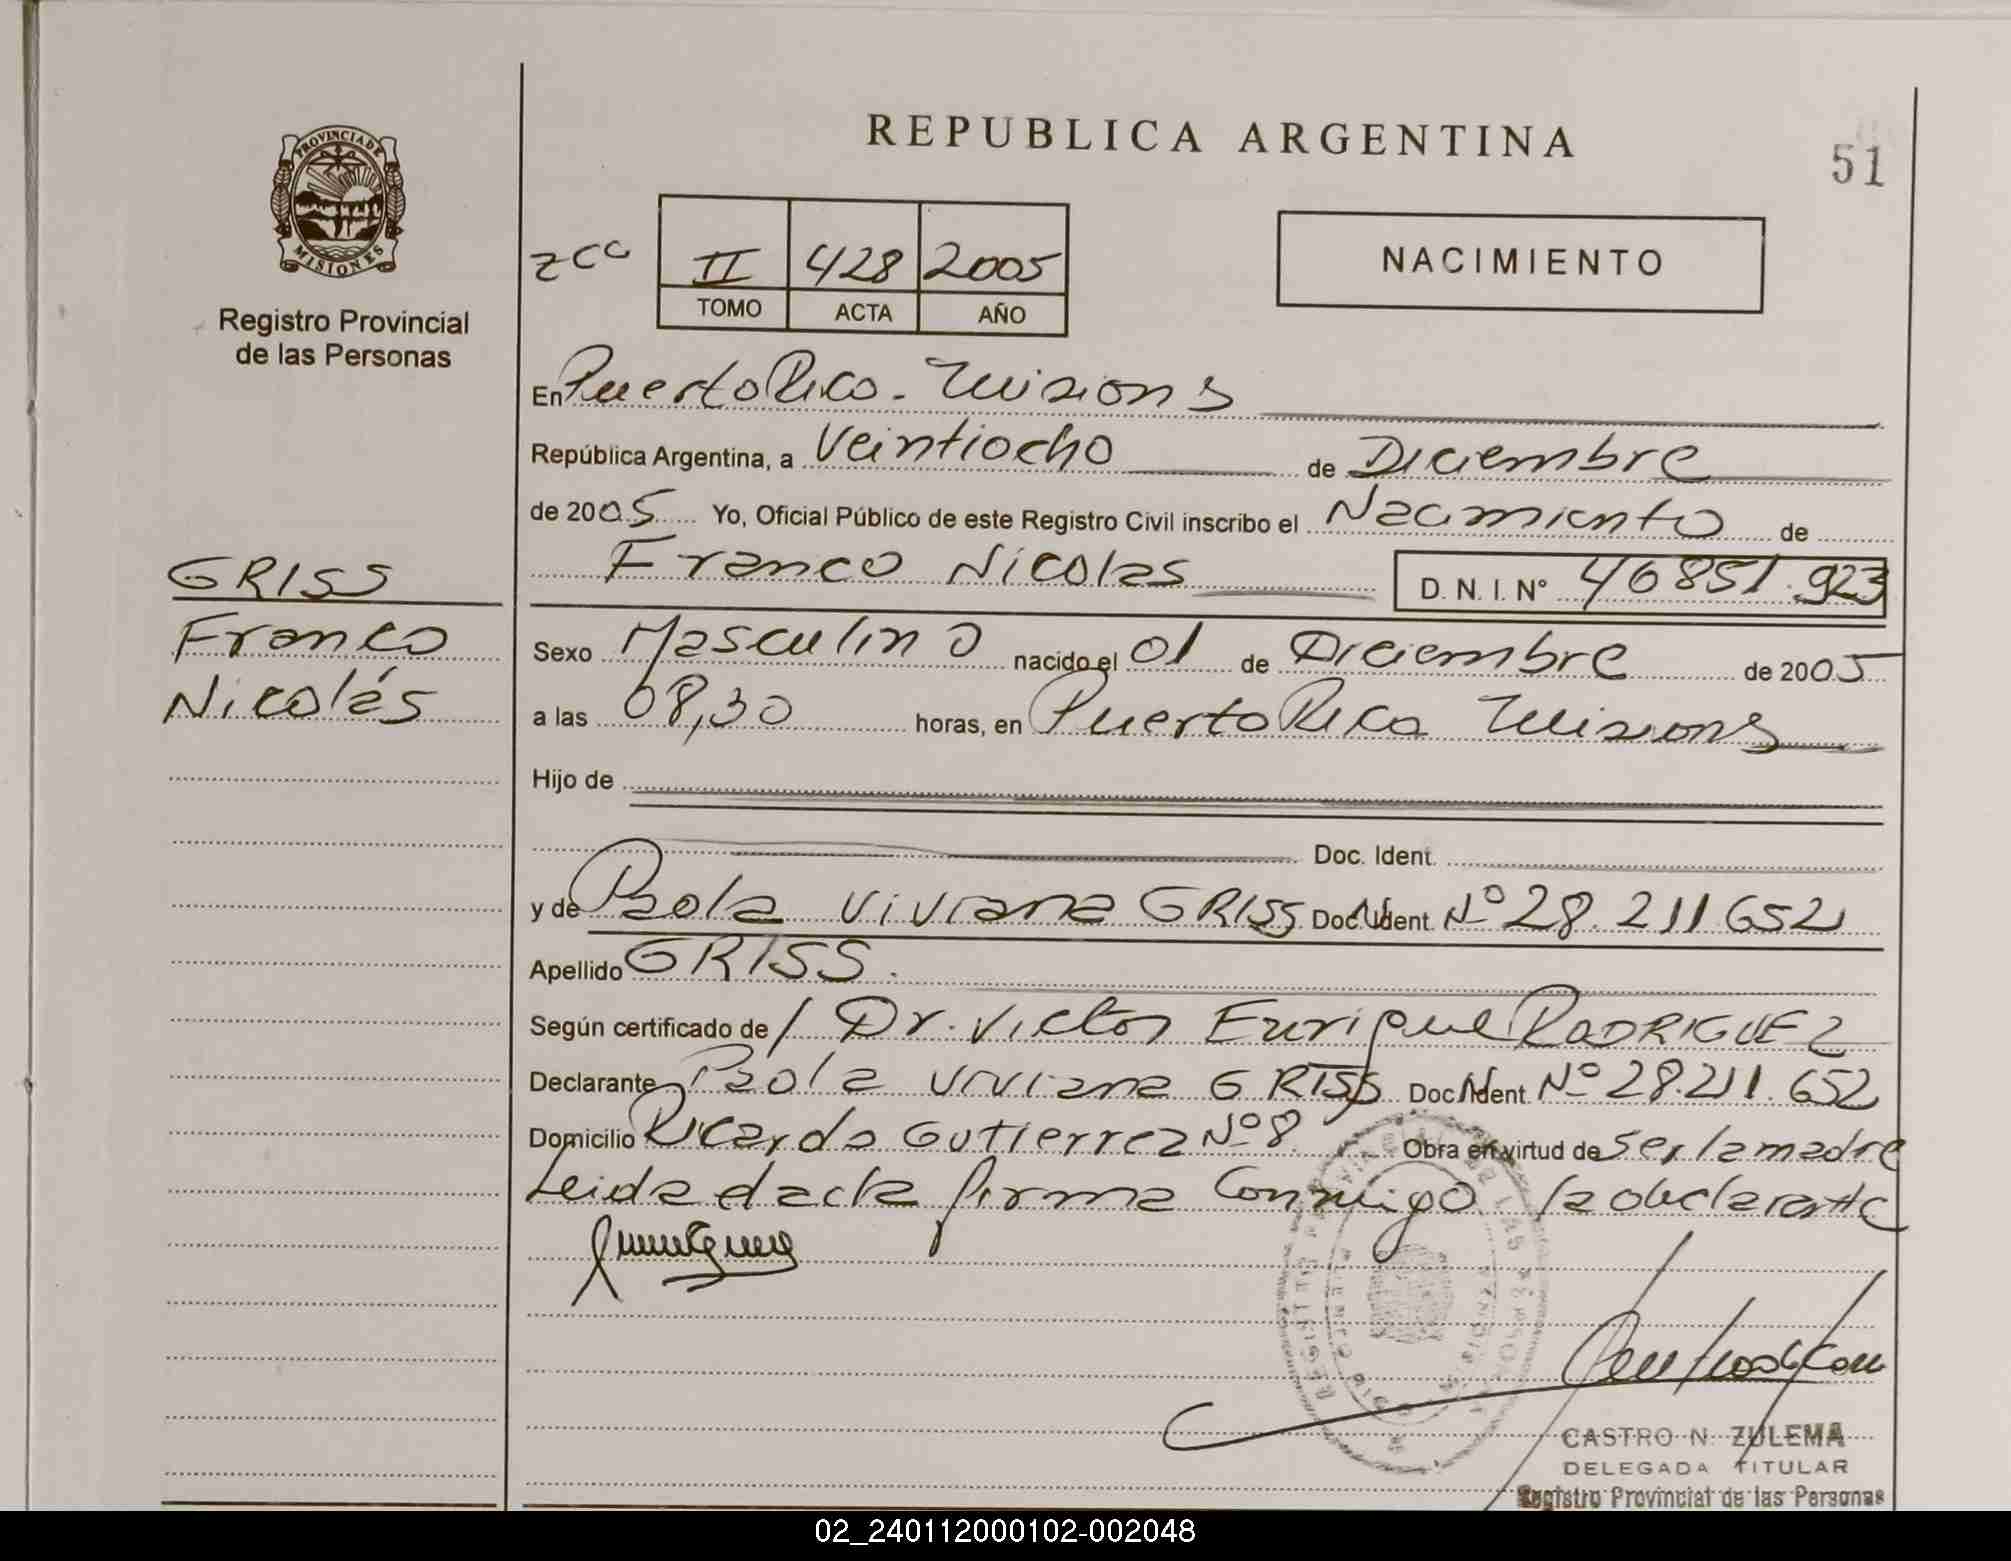 REPUBLICA ARGENTINA
51
PROVINCIA DE
MISIONES
Registro Provincial
de las Personas
zcc
II 428 2005
TOMO ACTA AÑO
NACIMIENTO
En Puerto Rico - Misiones
República Argentina, a Veintiocho de Diciembre
de 2005 Yo, Oficial Público de este Registro Civil inscribo el Nacimiento de
Franco Nicolas D. N. I. N° 46851.923
GRISS
Franco
Nicolás
Sexo Masculino nacido el 01 de Diciembre de 2005
a las 08,30 horas, en Puerto Rico Misiones
Hijo de
Doc. Ident.
y de Paola Viviana GRISS Doc. Ident. Nº 28.211.652
Apellido GRISS.
Según certificado de / Dr. Victor Enrique RODRIGUEZ
Declarante Paola Viviana GRISS Doc. Ident. Nº 28.211.652
Domicilio Ricardo Gutierrez Nº 8. Obra en virtud de ser la madre
Leida el acta firma conmigo la declarante
CASTRO N. ZULEMA
DELEGADA TITULAR
Registro Provincial de las Personas
02_240112000102-002048